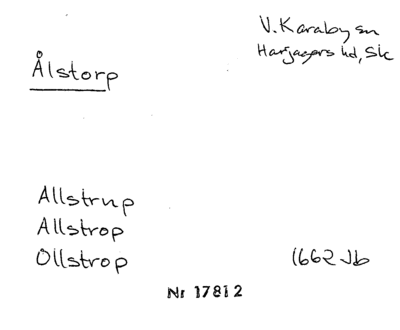 V. Karaby sn
Harjagers hd, Sk
Ålstorp
Allstrup
Allstrop
Ollstrop 1662 Jb
Nr 17812